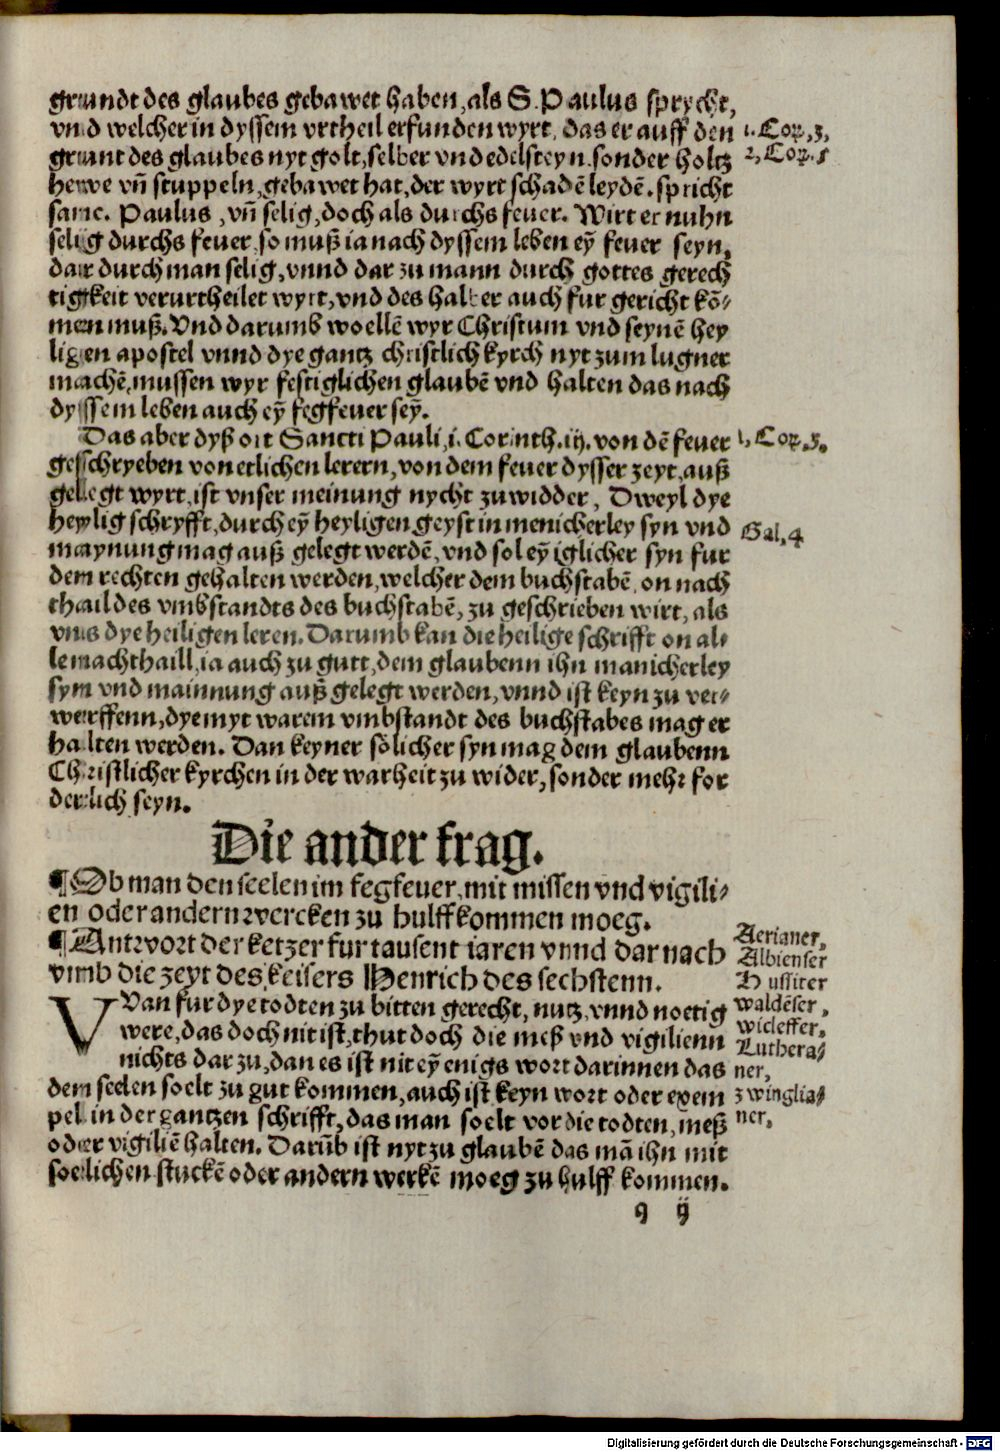 grundt des glaubes gebawet haben, als S. Paulus sprycht,
vnd welcher in dyssem vrtheil erfunden wyrt, das er auff den
1. Cor. 3.
grunt des glaubes nyt golt, selber vnd edelsteyn. sonder holtz
2, Cor. 5
hewe vn̄ stuppeln, gebawet hat, der wyrt schadē leydē. spricht
sanc. Paulus, vn̄ selig, doch als durchs feuer. Wirt er nuhn
selig durchs feuer, so muß ia nach dyssem leben eȳ feuer seyn,
dar durch man selig, vnnd dar zu mann durch gottes gerech
tigkeit verurtheilet wyrt, vnd des halber auch fur gericht kō-
men muß. Vnd darumb woellē wyr Christum vnd seynē hey
ligen apostel vnnd dye gantz christlich kyrch nyt zum lugner
machē, mussen wyr festiglichen glaubē vnd halten das nach
dyssem leben auch eȳ fegfeuer seȳ.
Das aber dyß ort Sancti Pauli, i. Corinth. iij. von dē feuer
1, Cor. 3.
geschryeben von etlichen lerern, von dem feuer dysser zeyt, auß
gelegt wyrt, ist vnser meinung nycht zuwidder, Dweyl dye
heylig schryfft, durch eȳ heyligen geyst in menicherley syn vnd
Gal, 4
maynung mag auß gelegt werdē, vnd sol eȳ iglicher syn fur
dem rechten gehalten werden, welcher dem buchstabē, on nach
thail des vmbstandts des buchstabē, zu geschrieben wirt, als
vns dye heiligen leren. Darumb kan die heilige schrifft on al-
le nachthaill, ia auch zu gutt, dem glaubenn ihn manicherley
sym vnd mainnung auß gelegt werden, vnnd ist keyn zu ver-
werffenn, dye myt warem vmbstandt des buchstabes mag er
halten werden. Dan keyner sōlicher syn mag dem glaubenn
Christlicher kyrchen in der warheit zu wider, sonder mehr for
derlich seyn.
Die ander frag.
¶ Ob man den seelen im fegfeuer, mit missen vnd vigili-
en oder andern wercken zu hulff kommen moeg.
¶ Antwort der ketzer fur tausent iaren vnnd dar nach
vmb die zeyt des keisers Henrich des sechstenn.
Aerianer,
Albienser
Hussiter
waldēser,
wicleffer,
Luthera-
ner,
zwinglia-
ner.
VVan fur dye todten zu bitten gerecht, nutz, vnnd noetig
were, das doch nit ist, thut doch die meß vnd vigilienn
nichts dar zu, dan es ist nit eȳ enigs wort darinnen das
dem seelen soelt zu gut kommen, auch ist keyn wort oder exem
pel in der gantzen schrifft, das man soelt vor die todten, meß
oder vigiliē halten. Darūb ist nyt zu glaubē das mā ihn mit
soelichen stuckē oder andern werkē moeg zu hulff kommen.
q ij
Digitalisierung gefördert durch die Deutsche Forschungsgemeinschaft - DFG